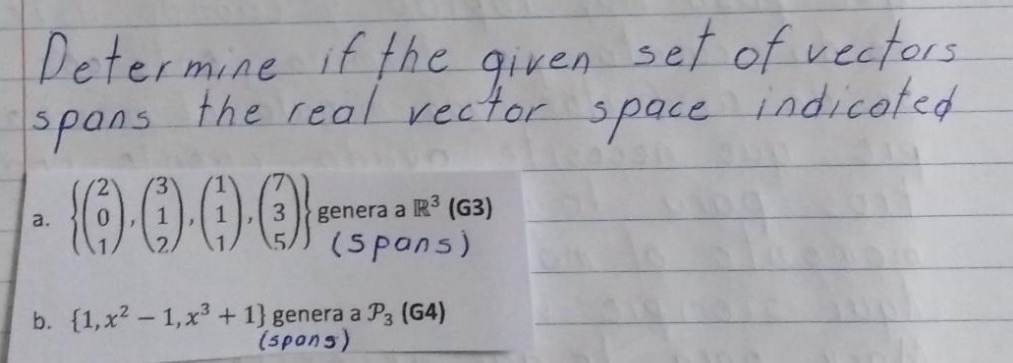 Determine if the given set of vectors
spans the real vector space indicated
a. {(2 0 1), (3 1 2), (1 1 1), (7 3 5)} genera a ℝ³ (G3)
(spans)
b. {1, x² − 1, x³ + 1} genera a 𝒫₃ (G4)
(spans)